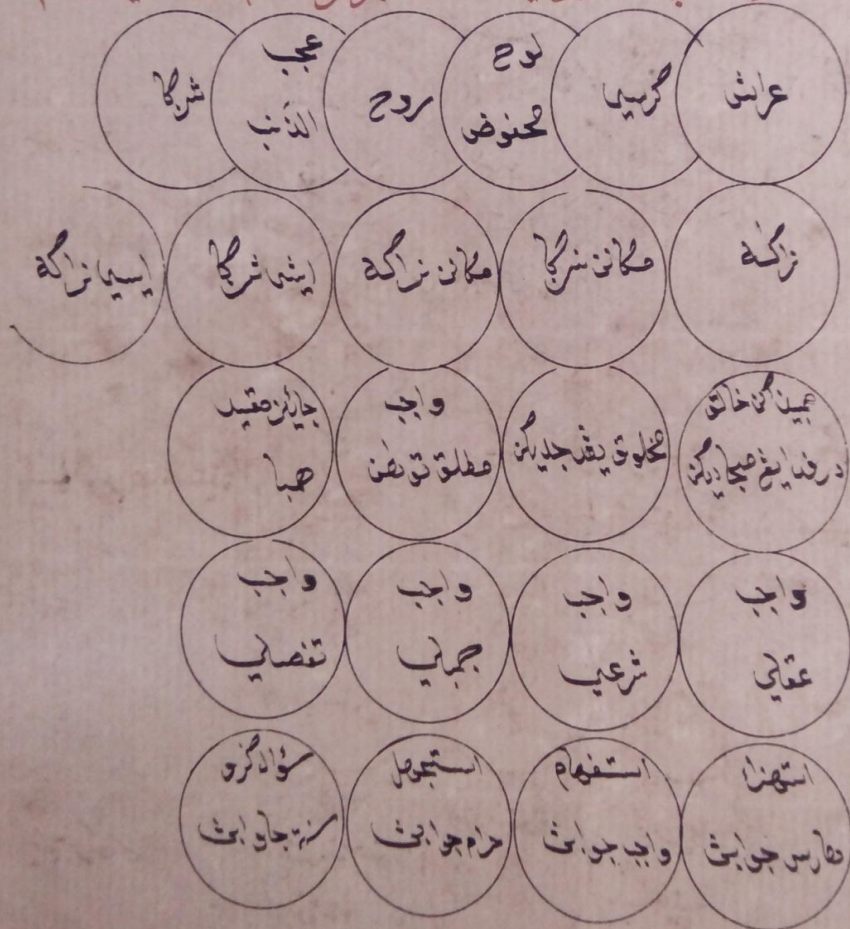 عراش
كرسي
لوح
محفوض
روح
عجب
الذنب
شركا
نراكه
مكانن شركا
مكانن نراكه
إيسي شركا
إيسي نراكه
خالق
درفد ايڠ منجاديكن
مخلوق يڠد جديكن
واجب
مطلق توهن
جائز مقيد
همبا
واجب
عقلي
واجب
شرعي
واجب
جملي
واجب
تفصلي
استهزا
جوابث
استفهام
واجب جوابث
استجوهل
حرام جوابث
سؤال كرو
سنة جوابث